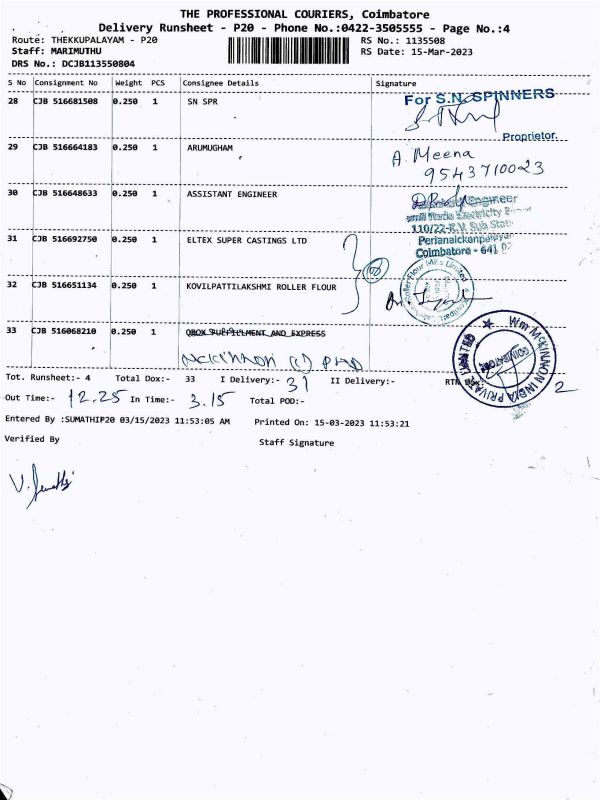 THE PROFESSIONAL COURIERS, Coimbatore
Delivery Runsheet - P20 - Phone No.:0422-3505555 - Page No.:4
Route: THEKKUPALAYAM - P20 RS No.: 1135508
Staff: MARIMUTHU RS Date: 15-Mar-2023
DRS No.: DCJB113550804
S No Consignment No Weight PCS Consignee Details Signature
28 CJB 516681508 0.250 1 SN SPR For S.N. SPINNERS
Proprietor.
29 CJB 516664183 0.250 1 ARUMUGHAM A. Meena
9543710023
30 CJB 516648633 0.250 1 ASSISTANT ENGINEER Engineer
Electricity
110/22-K.V. Sub Stat
31 CJB 516692750 0.250 1 ELTEX SUPER CASTINGS LTD Perianaickenpalaya
Coimbatore - 641 02
32 CJB 516651134 0.250 1 KOVILPATTILAKSHMI ROLLER FLOUR
Roller Flour Mills Limited
33 CJB 516068210 0.250 1 QBOX FULFILLMENT AND EXPRESS
MCKINNON INDIA PRIVATE LIMITED
COIMBATORE
Tot. Runsheet:- 4 Total Dox:- 33 I Delivery:- 31 II Delivery:- RTN Dox:- 2
Out Time:- 12.25 In Time:- 3.15 Total POD:-
Entered By :SUMATHIP20 03/15/2023 11:53:05 AM Printed On: 15-03-2023 11:53:21
Verified By Staff Signature